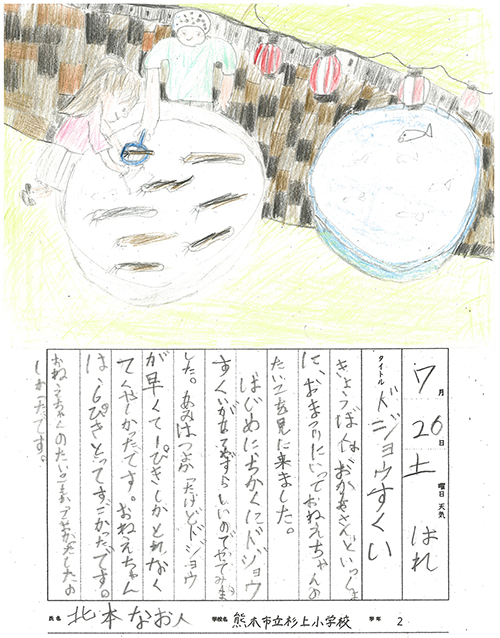 7月26日土曜日 天気 はれ
タイトル ドジョウすくい
きょうぼくは、おかあさんといっしょ
に、おまつりにいっておねえちゃんの
たいこを見に来ました。
はじめにちかくにドジョウ
すくいがめずらしいのでやてみま
した。あみはつよかっただけどドジョウ
が早くて1ぴきしかとれなく
てくやしかったです。おねえちゃん
は、6ぴきとってすごかったです。
おねえちゃんのたいこ
しかったです。
氏名 北本なお人 学校名 熊本市立杉上小学校 学年 2